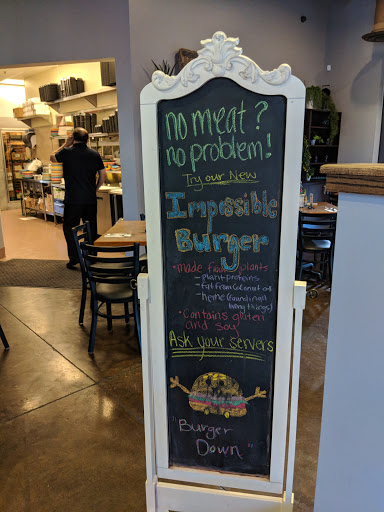 no meat?
no problem!
Try our New
Impossible
Burger
• made from plants
- plant proteins
- fat from coconut oil
- heme (found in all
living things)
• contains gluten
and soy
Ask your servers
"Burger
Down"